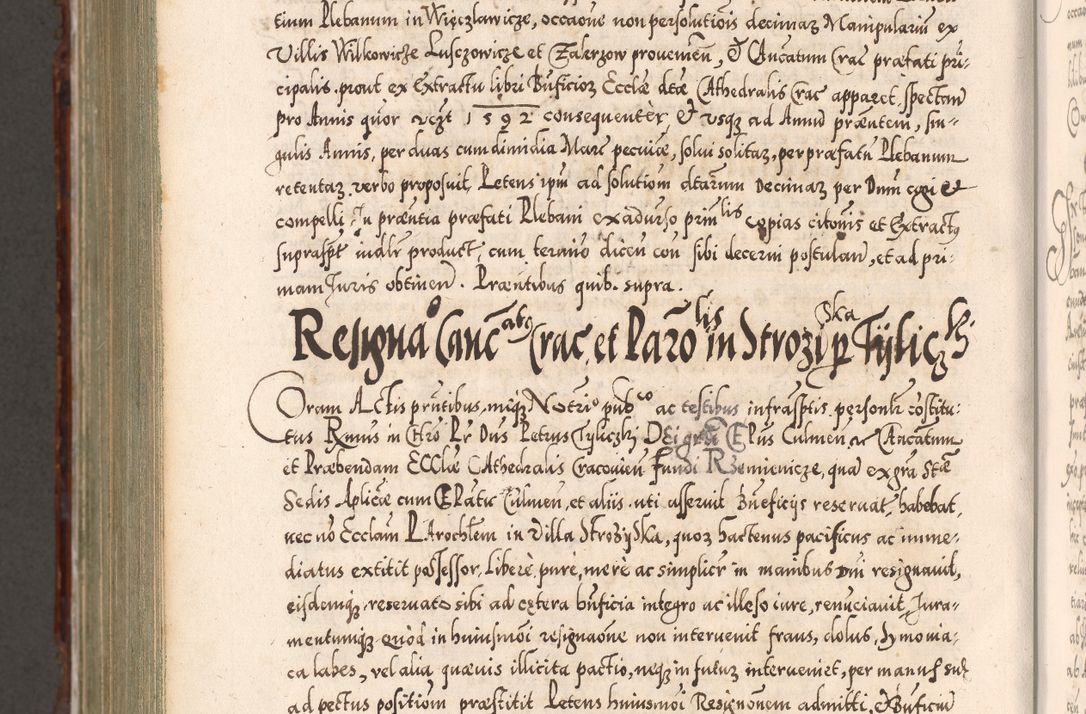 tium Plebanum in Więczlawicze, occaõne non persolutiõis decimaz Manipulariũ ex
Villis Wilkowicze Lusczowicze et Zalerzow prouenieñ, & Cancatum Crac præfati pri-
cipalis, prout ex Extractu libri Bñficioz Ecclæ dctæ Cathedralis Crac apparet spectan
pro Annis quor vczt 1592 consequenter, & vsq3 ad Annũ prænteim, sin-
gulis Annis, per duas cum dimidia Marc pecuiæ, solui solitaz, per præfatũ Plebanum
retentaz verbo proposuit, Petens ipm ad solutiom dtarum Decimaz per Dnm cogi et
compelli. In præntia præfati Plebani ex aduerso prinlis copias citonis et Extractq
suprasspt in alr product, cum termino dicen con sibi decerni postulan, et ad pri-
mam Juris obtinen. Præntibus quib. supra.
Resignaõ Cancatq Crac, et Parolis in Strozyska p Tyliczki
Coram Actis pñtibus, miq3 Notrio pubco ac testibus infrassptis personlr costitu-
tus Rmus in Chro Pr Dns Petrus Tyliczki Dei gra Epus Culmen, Cancatum
et Præbendam Ecclæ Cathedralis Cracouien fundi Rzemienicze, qua ex gra Stæ
Sedis Aplicæ cum Epatu Culmen, et aliis, uti asseruit Bñeficijs reseruat, habebat,
nec no Ecclam Parochlem in Villa Strozyska, quoz hactenus pacificus ac imme-
diatus extitit possessor, libere, pure, mere ac simplicr in manibus Dni resignauit,
eisdemq3 reseruato sibi ad cętera bñficia integro ac illeso iure, renũciauit, Jura-
mentumq3 quod in huiusmõi resignaõne non interuenit fraus, dolus, Symonia-
ca labes, vel alia quæuis illicita pactio, neq3 in futur interueniet, per manus suas
ad pectus positiom præstitit Petens huiusmõi Resignonem admitti, & Bñficiũ